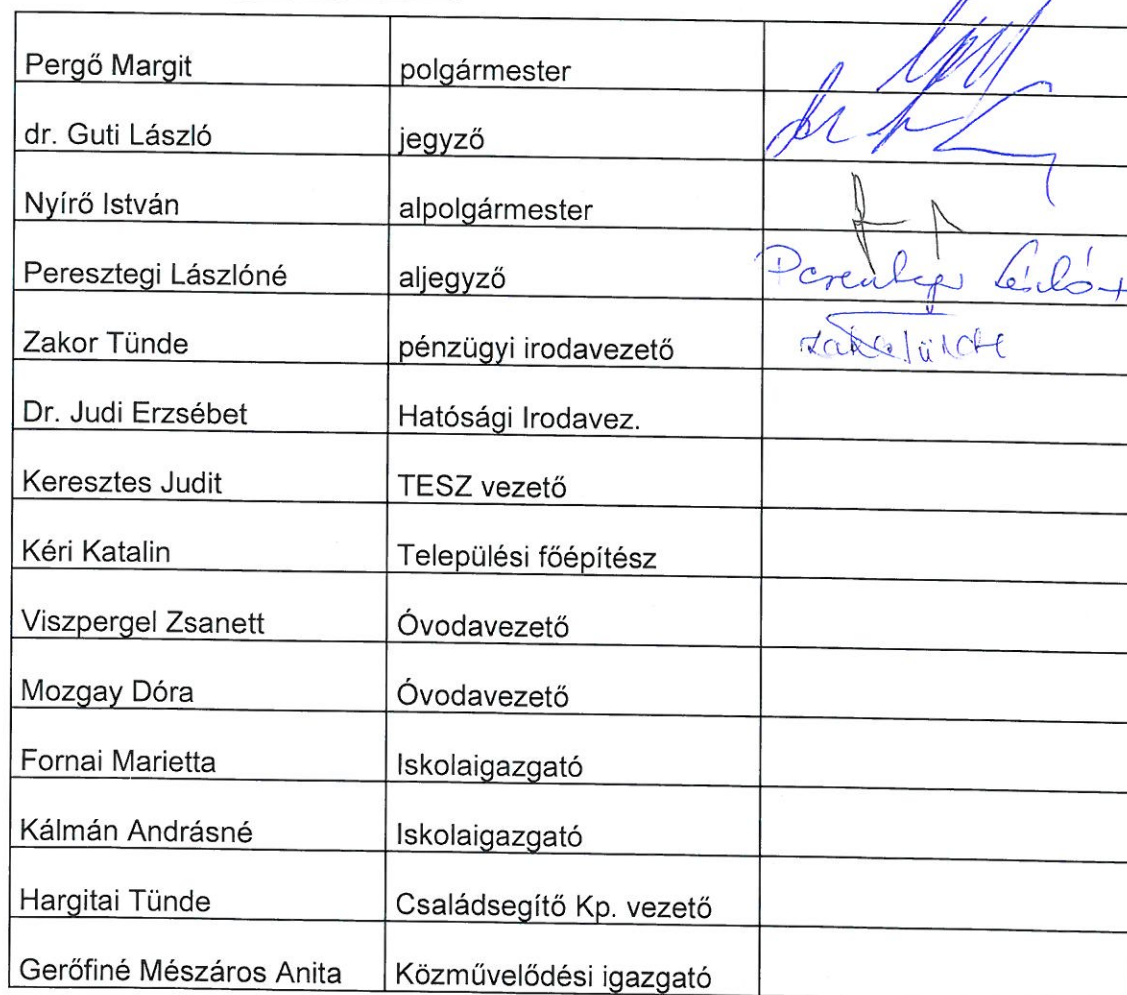 Pergő Margit polgármester
dr. Guti László jegyző
Nyírő István alpolgármester
Peresztegi Lászlóné aljegyző
Zakor Tünde pénzügyi irodavezető
Dr. Judi Erzsébet Hatósági Irodavez.
Keresztes Judit TESZ vezető
Kéri Katalin Települési főépítész
Viszpergel Zsanett Óvodavezető
Mozgay Dóra Óvodavezető
Fornai Marietta Iskolaigazgató
Kálmán Andrásné Iskolaigazgató
Hargitai Tünde Családsegítő Kp. vezető
Gerőfiné Mészáros Anita Közművelődési igazgató